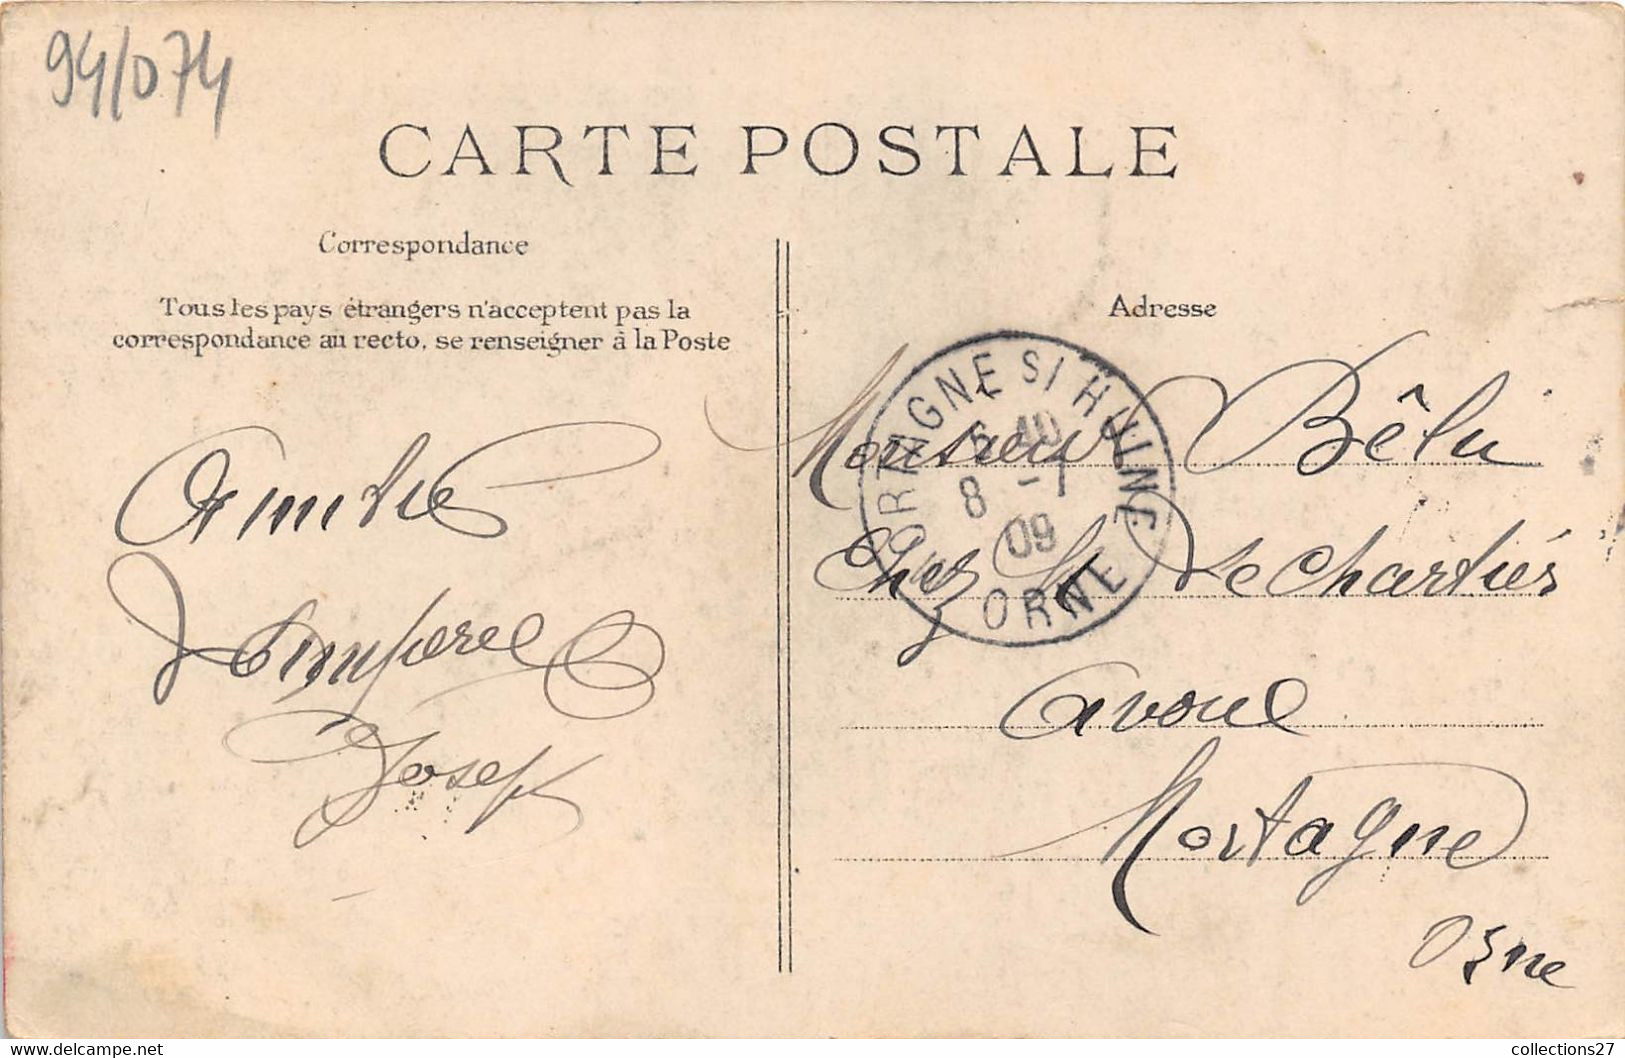 94/074
CARTE POSTALE
Correspondance
Tous les pays étrangers n'acceptent pas la
correspondance au recto, se renseigner à la Poste
Amitié
Joseph
Adresse
Monsieur Bêlu
Chez Mr Lechartiés
Avoué
Mortagne
Orne
MORTAGNE S/ HUINE
6 40
8 -1
09
ORNE
www.delcampe.net
collections27